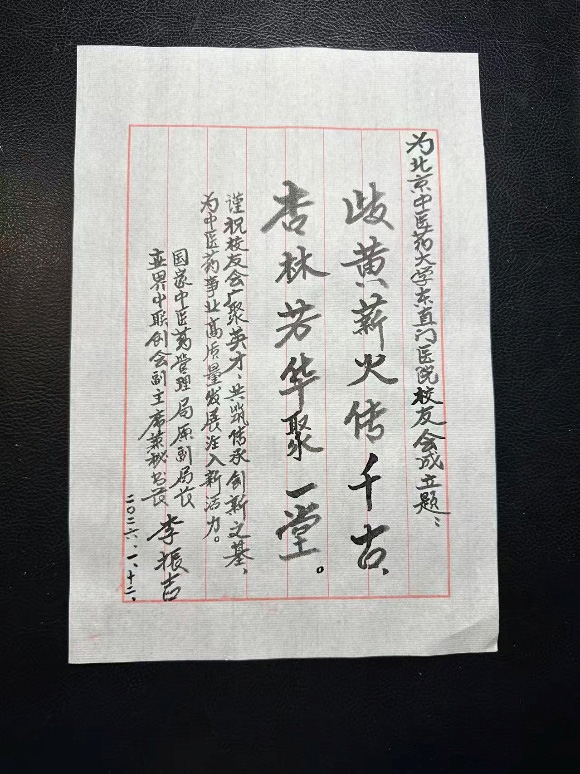 为北京中医药大学东直门医院校友会成立题：
歧黄薪火传千古、
杏林芳华聚一堂。
谨祝校友会广聚英才、共筑传承创新之基、
为中医药事业高质量发展注入新活力。
国家中医药管理局原副局长
世界中联创会副主席兼秘书长
李振吉
二〇二六、一、十二、